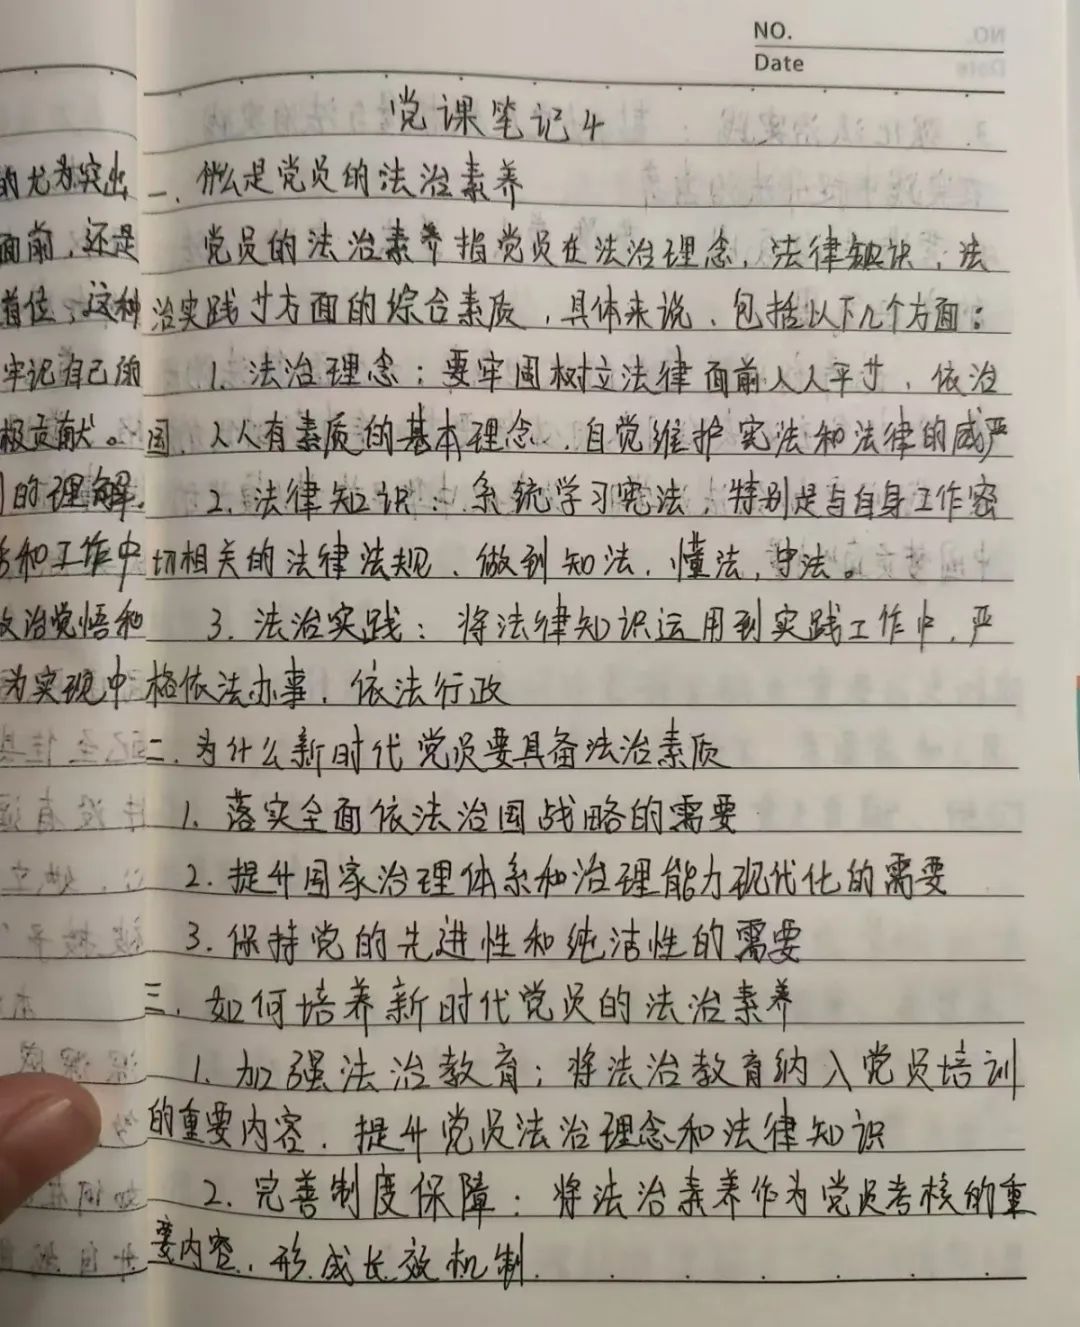 NO.
Date
党课笔记4
一、什么是党员的法治素养
党员的法治素养指党员在法治理念、法律知识、法
治实践等方面的综合素质，具体来说、包括以下几个方面：
1、法治理念：要牢固树立法律面前人人平等、依治
国、人人有素质的基本理念、自觉维护宪法和法律的威严
2、法律知识：系统学习宪法，特别是与自身工作密
切相关的法律法规、做到知法、懂法、守法。
3、法治实践：将法律知识运用到实践工作中，严
格依法办事，依法行政
二、为什么新时代党员要具备法治素质
1、落实全面依法治国战略的需要
2. 提升国家治理体系和治理能力现代化的需要
3. 保持党的先进性和纯洁性的需要
三、如何培养新时代党员的法治素养
1、加强法治教育；将法治教育纳入党员培训
的重要内容，提升党员法治理念和法律知识
2、完善制度保障：将法治素养作为党员考核的重
要内容，形成长效机制
的尤为突出
面前，还是
首位，这种
牢记自己的
极贡献。
的理解。
和工作中
政治觉悟和
为实现中